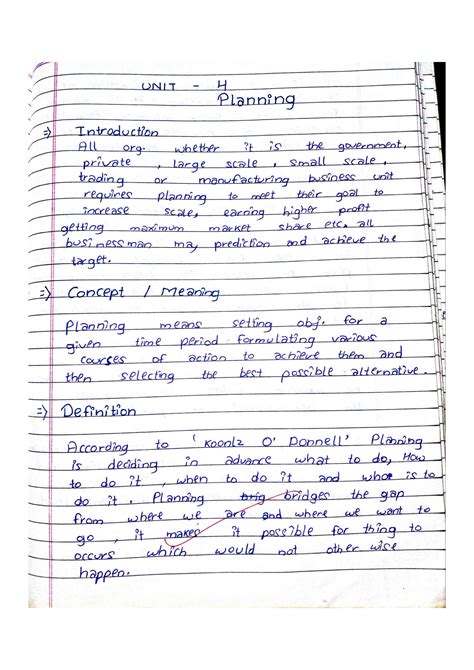 UNIT - 4
Planning
=> Introduction
All org. whether it is the government,
private , large scale , small scale ,
trading or manufacturing business unit
requires planning to meet their goal to
increase scale, earning higher profit
getting maximum market share etc, all
businessman may prediction and achieve the
target.
=> Concept / Meaning
Planning means setting obj. for a
given time period formulating various
courses of action to achieve them and
then selecting the best possible alternative.
=> Definition
According to 'Koonlz O' Donnell' Planning
is deciding in advance what to do, How
to do it , when to do it and who is to
do it . Planning brig bridges the gap
from where we are and where we want to
go , it makes it possible for thing to
occurs which would not other wise
happen.